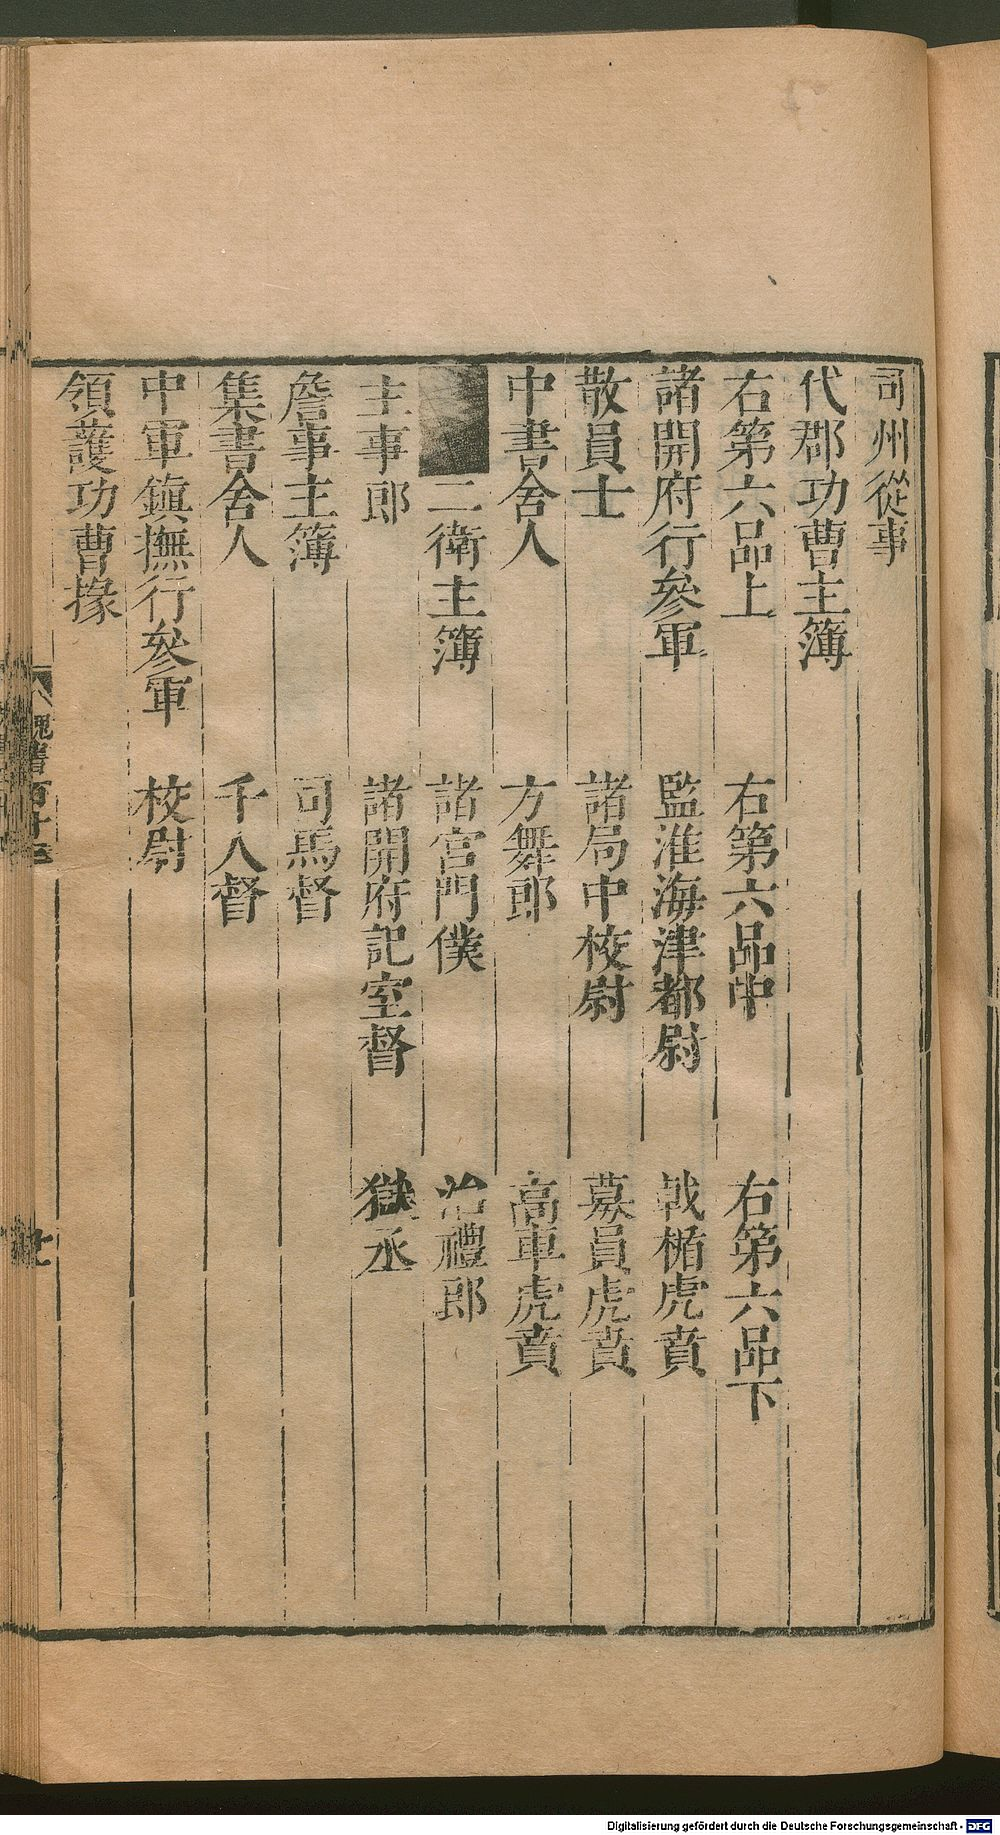 司州從事
代郡功曹主簿
右第六品上　右第六品中　右第六品下
諸開府行參軍　監淮海津都尉　戟楯虎賁
散員士　諸局中校尉　募員虎賁
中書舍人　方舞郎　高車虎賁
二衛主簿　諸宮門僕　治禮郎
主事郎　諸開府記室督　獄丞
詹事主簿　司馬督
集書舍人　千人督
中軍鎮撫行參軍　校尉
領護功曹掾
魏書百十三
Digitalisierung gefördert durch die Deutsche Forschungsgemeinschaft - DFG